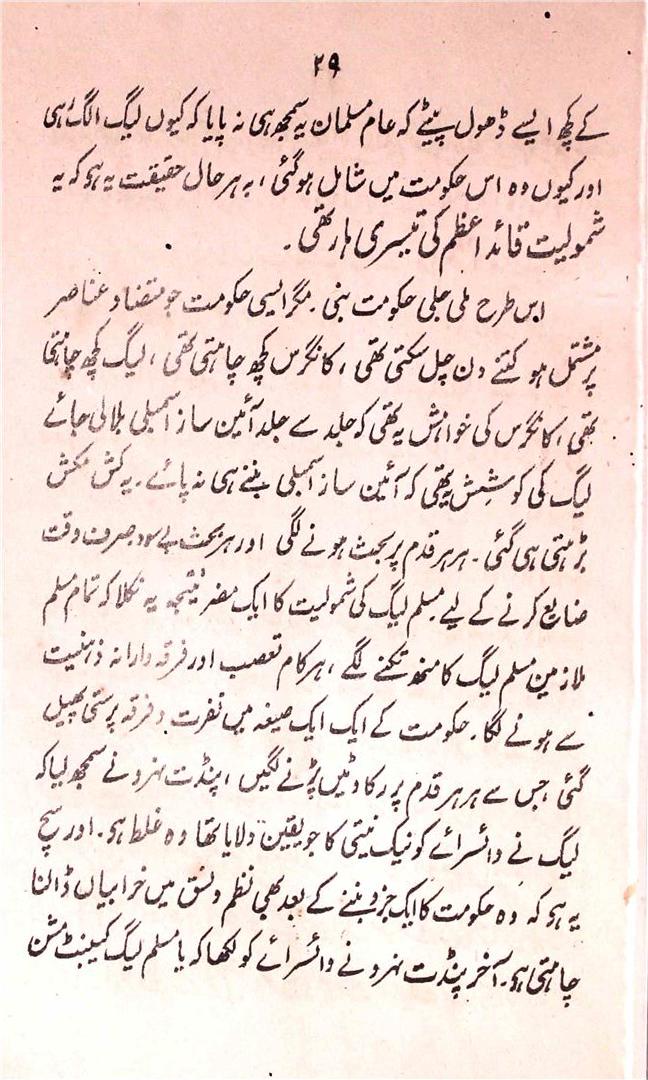 ۲۹
کے کچھ ایسے ڈھول پیٹے کہ عام مسلمان یہ سمجھ ہی نہ پایا کہ کیوں لیگ الگ رہی
اور کیوں وہ اس حکومت میں شامل ہوگئی، بہ ہر حال حقیقت یہ ہو کہ یہ
شمولیت قائد اعظم کی تیسری ہار تھی۔
اس طرح ملی جلی حکومت بنی۔ مگر ایسی حکومت جو متضاد عناصر
پر مشتمل ہو کتنے دن چل سکتی تھی، کانگرس کچھ چاہتی تھی، لیگ کچھ چاہتی
تھی، کانگرس کی خواہش یہ تھی کہ جلد سے جلد آئین ساز اسمبلی بلالی جائے
لیگ کی کوشش یہ تھی کہ آئین ساز اسمبلی بننے ہی نہ پائے۔ یہ کش مکش
بڑھتی ہی گئی۔ ہر ہر قدم پر بحث ہونے لگی اور ہر بحث بے سود صرف وقت
ضایع کرنے کے لیے۔ مسلم لیگ کی شمولیت کا ایک مضر نتیجہ یہ نکلا کہ تمام مسلم
ملازمین مسلم لیگ کا منھ تکنے لگے، ہر کام تعصب اور فرقہ وارانہ ذہنیت
سے ہونے لگا۔ حکومت کے ایک ایک صیغہ میں نفرت و فرقہ پرستی پھیل
گئی، جس سے ہر ہر قدم پر رکاوٹیں پڑنے لگیں، پنڈت نہرو نے سمجھ لیا کہ
لیگ نے وائسرائے کو نیک نیتی کا جو یقین دلایا تھا وہ غلط ہو۔ اور سچ
یہ ہو کہ وہ حکومت کا ایک جزو بننے کے بعد بھی نظم و نسق میں خرابیاں ڈالنا
چاہتی ہو۔ آخر پنڈت نہرو نے وائسرائے کو لکھا کہ یا مسلم لیگ کیبنٹ مشن